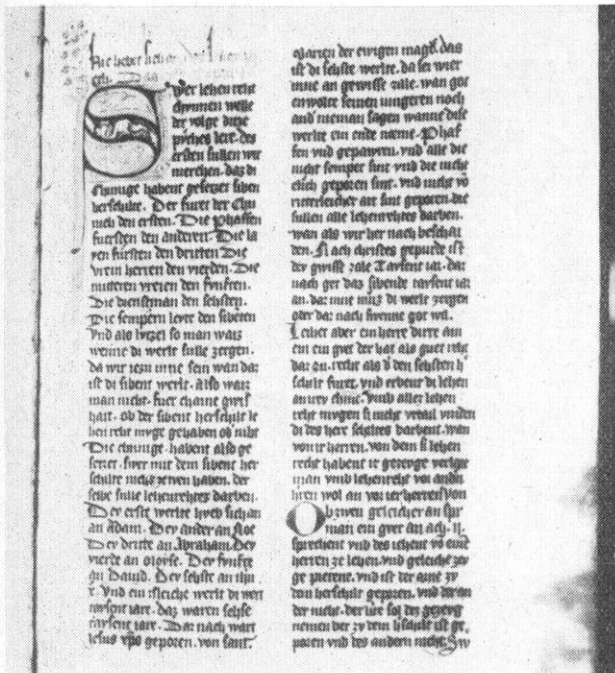 Hie hebet sich er
Swer lehen reht
chunnen welle
der volge ditze
pches lere. des
ersten sullen wir
merchen. daz di
Chunige habent gesetzet siben
herschilte. Der furet der Chu
nich den ersten. Die Phaffen
fuersten den anderen. Die la
yen fürsten den dritten Die
vrein herren den vierden. Die
mitteren vreien den fvnften.
Die dienstman den sehsten.
Die sempern levte den sibeten
Vnd als lvzel so man waiz
wenne di werlt sulle zergen.
da wir iezu inne sein wan daz
ist di sibent werlt. also waiz
man niht. fuer chaine gwis
hait. ob der sibent herschilt le
hen reht mvge gehaben od niht
Die chunige. habent also ge
setzet. swer mit dem sibent her
schilte nicht ze tven haben. der
selbe sulle lehenrehtes darben.
Der erste werlte hveb sich an
an Adam. Dev ander an Noe
Dev dritte an Abraham. Dev
vierde an Moyse. Dev fvnfte
an Dauid. Dev sehste an ihu
x. Vnd ein isleiche werlt di wert
tavsent iare. daz waren sehse
tavsent iare. Dar nach wart
iesus xps geporen. von sant.
Marien der ewigen magt. daz
ist di sehste werlte. da sei wier
inne an gewisse zale. wan got
en wolte seinen iungeren noch
and nieman sagen wanne dise
werlte ein ende næme. Phaf
fen vnd gepawren. vnd alle die
nicht semper sint vnd die nicht
elich geporen sint. vnd nicht vō
ritterleicher art sint geporen. die
sullen alle lehenrehtes darben.
wan als wir her nach beschai
den. Nach christes gepurde ist
der gwisse zale Tavsent iar. dar
nach ger daz sibende tavsent iar
an. dar inne muz di werlt zergen
oder dar nach swenne got wil.
Leihet aber ein herre dirre ain
em ein gvet der hat als guet reht
dar an. recht als d den sehsten h
schilt furet. vnd erbent di lehen
an irev chint. vnd allez lehen
reht mvgen si niht
di des herschiltes darbent. wan
von ir herren. von dem si lehen
recht habent
man vmb lehenrecht vor andn
hren wol an vor ir herren Von
Ob zwen geleicher an spr
man ein gvet an ach. h
sprechent vnd des iehent vō eine
herren ze lehen. vnd geleiche zev
ge pietent. vnd ist der aine zv
dem herschilt geporen. vnd der an
der nicht. der h're sol des gezevg
nemen der zv dem hschilt ist ge
poren vnd des andern nicht. Zw